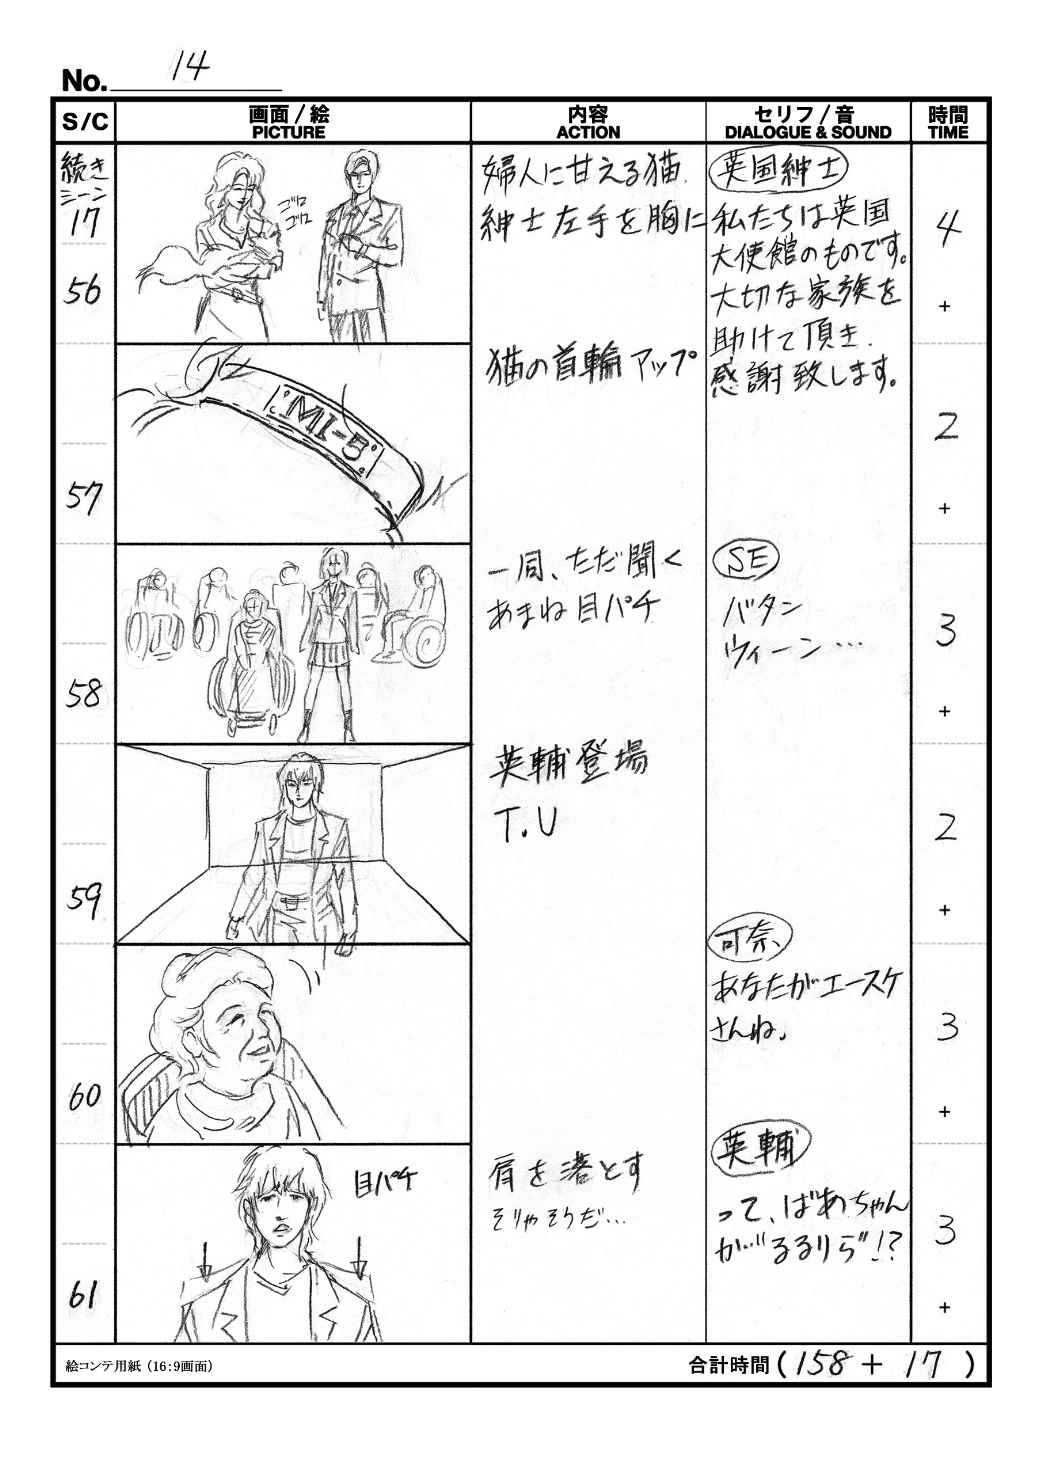 No. 14
S/C
画面/絵
PICTURE
内容
ACTION
セリフ/音
DIALOGUE & SOUND
時間
TIME
続き
シーン
17
56
ゴロ
ゴロ
婦人に甘える猫.
紳士左手を胸に
英国紳士
私たちは英国
大使館のものです。
大切な家族を
助けて頂き.
感謝致します。
4
+
57
MI-5
猫の首輪アップ
2
+
58
一同、ただ聞く
あまね目パチ
SE
バタン
ウィーン…
3
+
59
英輔登場
T.U
2
+
60
可奈
あなたがエースケ
さんね。
3
+
61
目パチ
肩を落とす
そりゃそうだ…
英輔
って、ばあちゃん
が…"るるりら"!?
3
+
絵コンテ用紙(16:9画面)
合計時間(158 + 17)